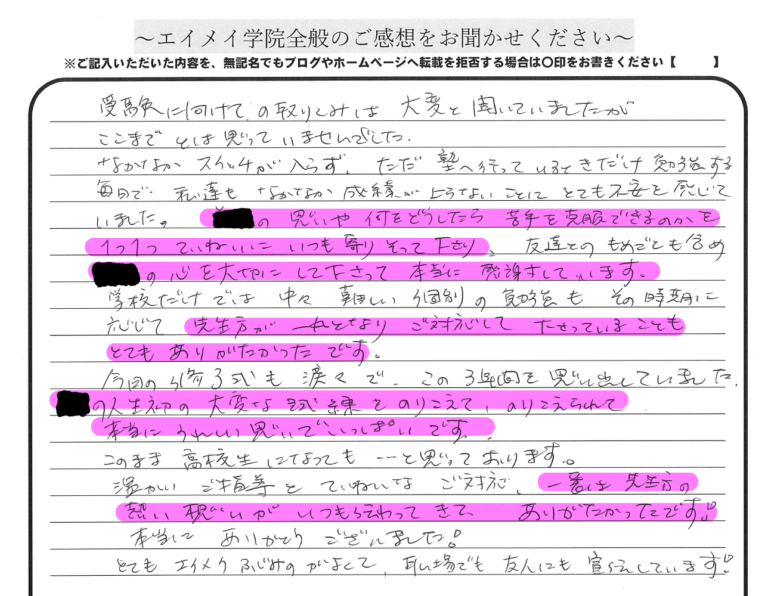 ～エイメイ学院全般のご感想をお聞かせください～
※ご記入いただいた内容を、無記名でもブログやホームページへ転載を拒否する場合は〇印をお書きください【　　】
受験に向けての取りくみは 大変と聞いていましたが
ここまでとは思っていませんでした。
なかなか スイッチが入らず、ただ 塾へ行っているときだけ 勉強する
毎日で、私達も なかなか 成績が上らないことに とても不安を感じて
いました。 の思いや 何をどうしたら 苦手を克服できるのかを
1つ1つ ていねいに いつも寄りそって下さり、友達とのもめごとも含め
の心を大切にして下さって 本当に 感謝しています。
学校だけでは 中々 難しい 個別の勉強も その時期に
応じて 先生方が 一丸となり ご対応して 下さっていることも
とても ありがたかったです。
今回の 式も 涙々で、この3年間を思い出していました。
の人生初の 大変な 試練を のりこえて、のりこえられて
本当に うれしい思いで いっぱいです。
このまま 高校生になっても ーーと思っております。
温かい ご指導と ていねいな ご対応、一番は 先生方の
熱い想いが いつも伝わってきて、 ありがたかったです!!
本当に ありがとうございました!
とても エイメイふじみのがよくて、 場でも 友人にも 宣伝しています!!